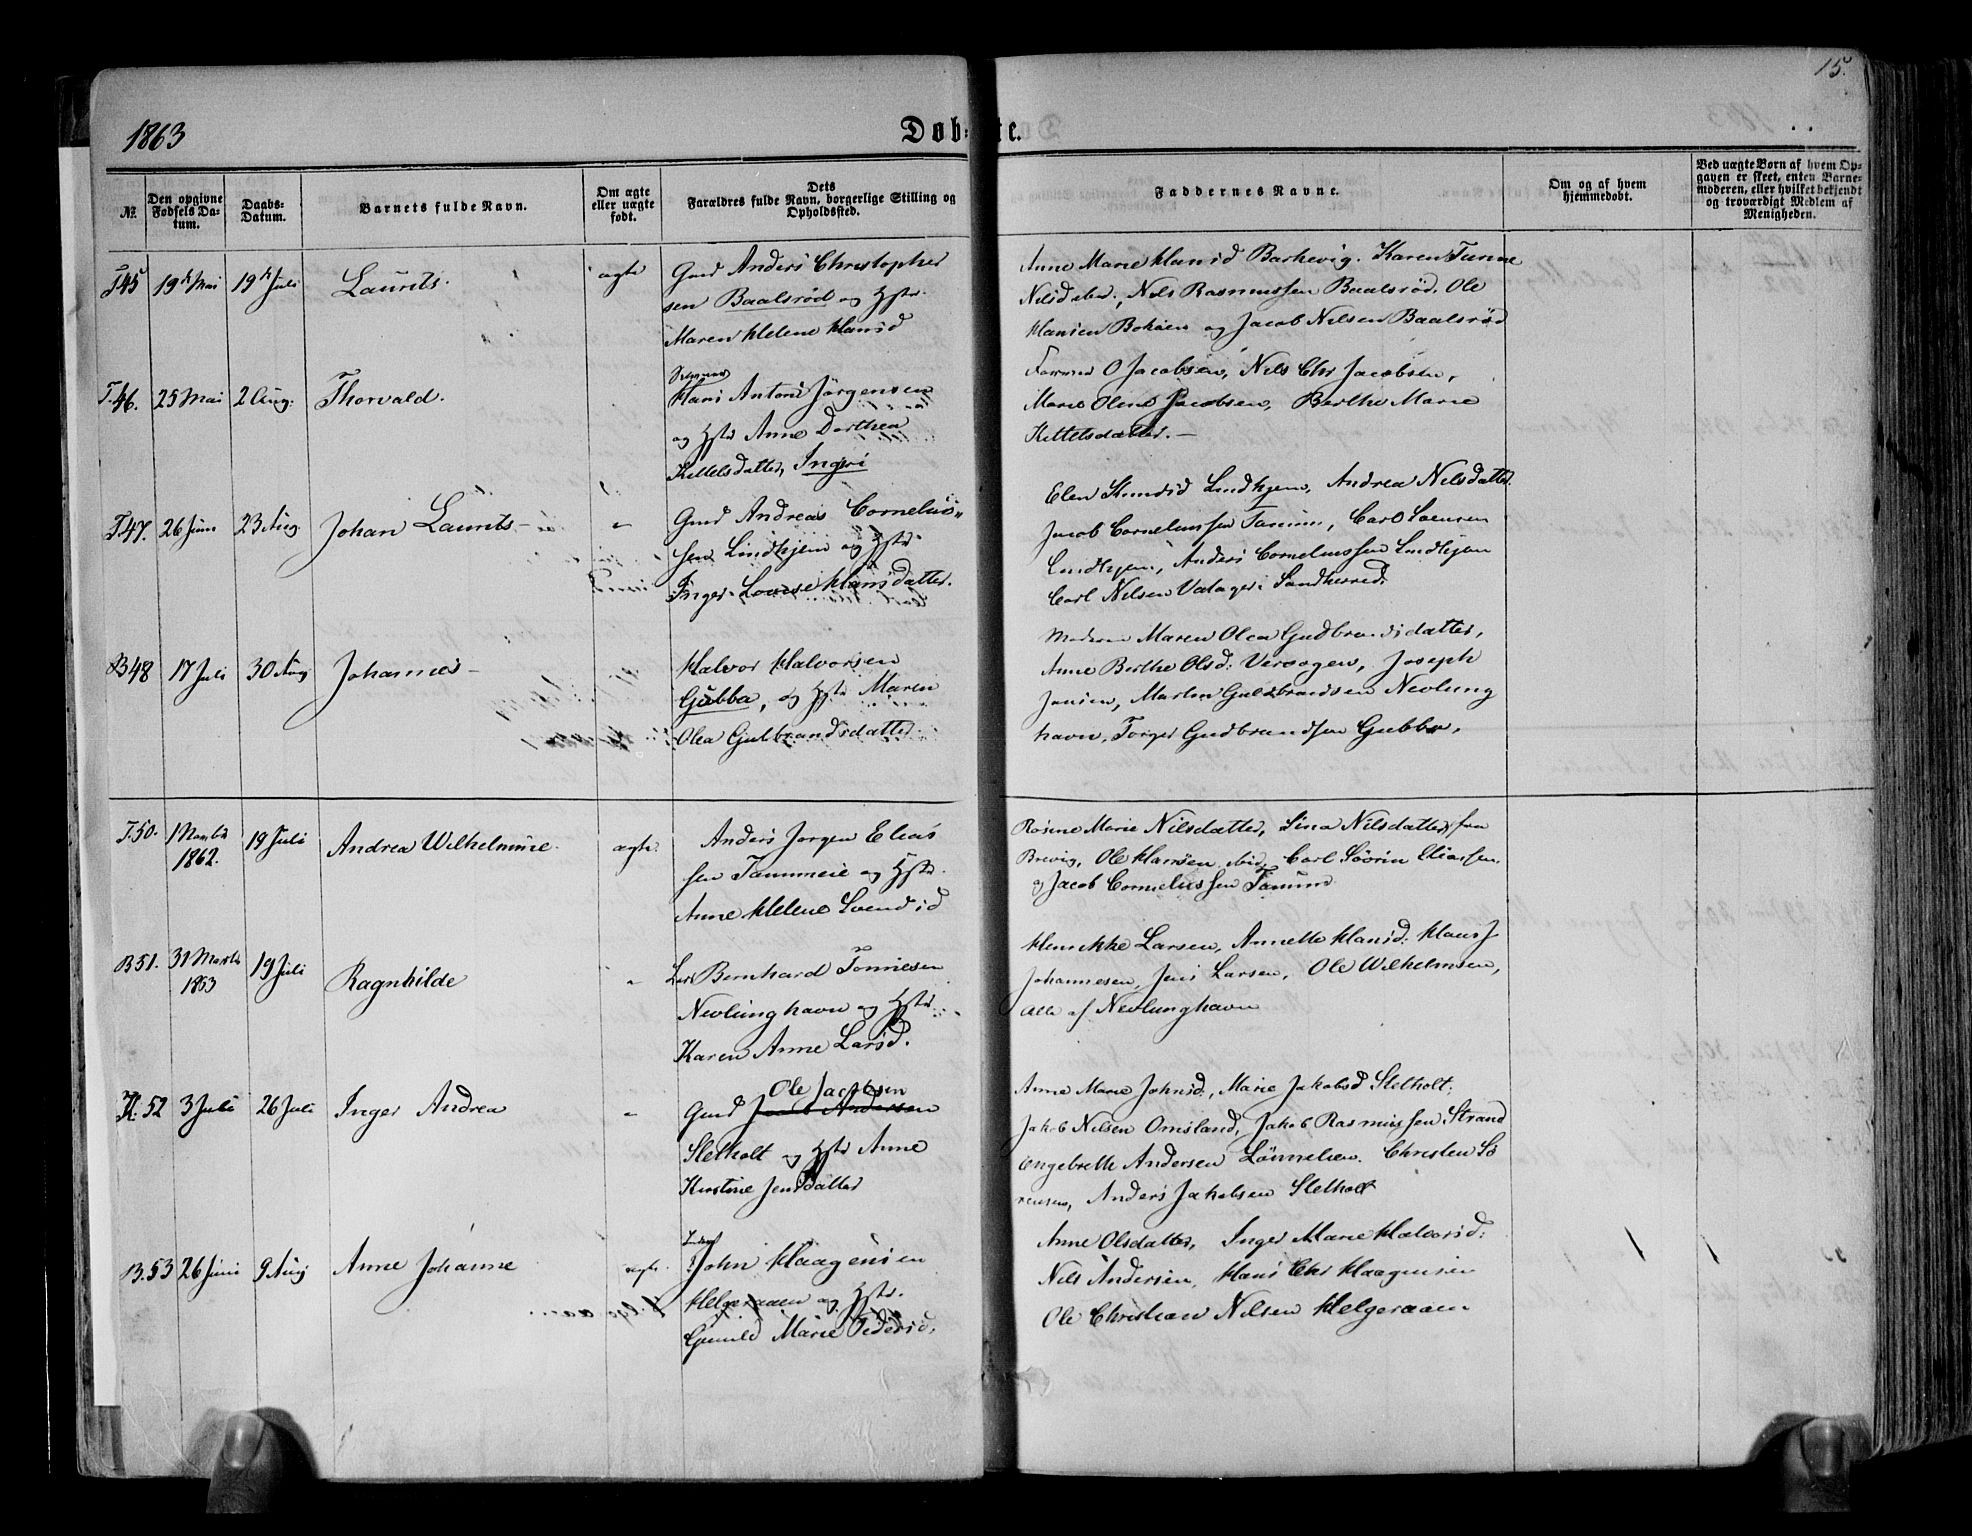 15.
1863
Døb-te.
№
Den opgivne Fødsels Datum.
Daabs-Datum.
Barnets fulde Navn.
Om ægte eller uægte født.
Dets Forældres fulde Navn, borgerlige Stilling og Opholdssted.
Faddernes Navne.
Om og af hvem hjemmedøbt.
Ved uægte Børn af hvem Opgaven er skeet, enten Barnemoderen, eller hvilket bekjendt og troværdigt Medlem af Menigheden.
T45 19de Mai 19de Juli Laurits. ægte Gmd Anders Christopher
sen Baalsrød og Hstr.
Maren Helene Hansd
Anne Marie Hansd Barkevig. Karen
Nilsd, Nils Rasmussen Baalsrød. Ole
Hansen og Jacob Nilsen Baalsrød
T.46. 25 Mai 2 Aug. Thorvald.
Hans Anton Jørgensen
og Hstr Anne Dorthea
Kittelsdatter, Ingeri
O Jacobsen, Nils Chr Jacobsen,
Maren Olene Jacobsen, Berthe Marie
Kittelsdatter.—
T47. 26 Juni 23 Aug Johan Laurits— " Gmd Andreas Cornelius=
sen Lindhjem og Hstr.
Inger Louise Hansdatter.
Elen Lindhjem, Andrea Nilsdatter
Jacob Corneliussen Tanum, Carl Svensen
Lindhjem, Anders Corneliussen Lindhjem
Carl Nilsen Sandherred.
B48 17 Juli 30 Aug Johannes—
Halvor Halvorsen
Gubba, og Hstr Maren
Olea Gulbrandsdatter
Maren Olea Gudbrandsdatter,
Anne Berthe Olsd: Joseph
Jansen, Martin Guldbrandsen Nevlung
havn, Torger Gudbrandsen Gubba,
T.50. 1 Novbr 1862. 19 Juli Andrea Wilhelmine. ægte. Anders Jørgen Elias
sen Tammeie og Hstr.
Anne Helene Svendsd
Rosine Marie Nilsdatter, Lina Nilsdatter fra
Brevig, Ole Hansen ibid, Carl Søvrin Eliassen
og Jacob Corneliussen Tanum
B51. 31 Marts 1863 19 Juli Ragnhilde " Bernhard Tønnesen
Nevlunghavn og Hstr.
Karen Anne Larsd.
Henrikke Larsen, Annette Hansd: Klaus J
Johannesen, Jens Larsen, Ole Wilhelmsen,
alle af Nevlunghavn
K.52 3 Juli 26 Juli Inger Andrea " Gmd Jacob Andersen
Ole Jacobsen
Sletholt og Hstr Anne
Kirstine Jensdatter
Anne Marie Johnsd:, Marie Jakobsd Sletholt.
Jakob Nilsen Omsland, Jakob Rasmussen Strand
Engebreth Andersen Lønnelsen. Christen Sø
rensen, Anders Jakobsen Sletholt
B.53 26 Juni 9 Aug Anne Johanne ægte. John Haagensen
Helgeraaen og Hstr.
Gunild Marie Pedersd.
Anne Olsdatter, Inger Marie Halvorsd:
Nils Andersen, Hans Chr Haagensen
Ole Christian Nilsen Helgeraaen